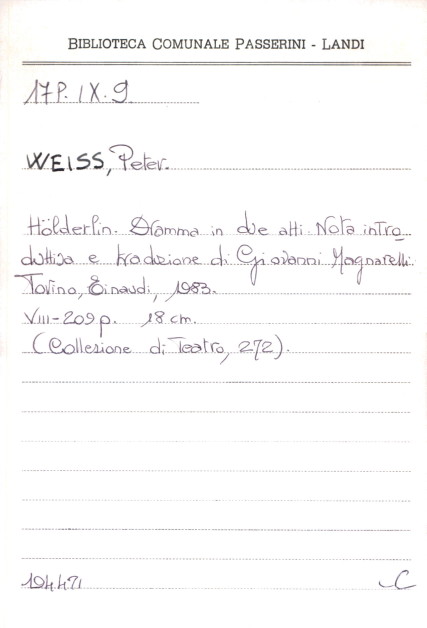 BIBLIOTECA COMUNALE PASSERINI - LANDI
17P.IX.9
WEISS, Peter.
Hölderlin. Dramma in due atti. Nota intro
duttiva e traduzione di Giovanni Magnarelli.
Torino, Einaudi, 1983.
VIII-209 p. 18 cm.
(Collezione di Teatro, 272).
194471 C